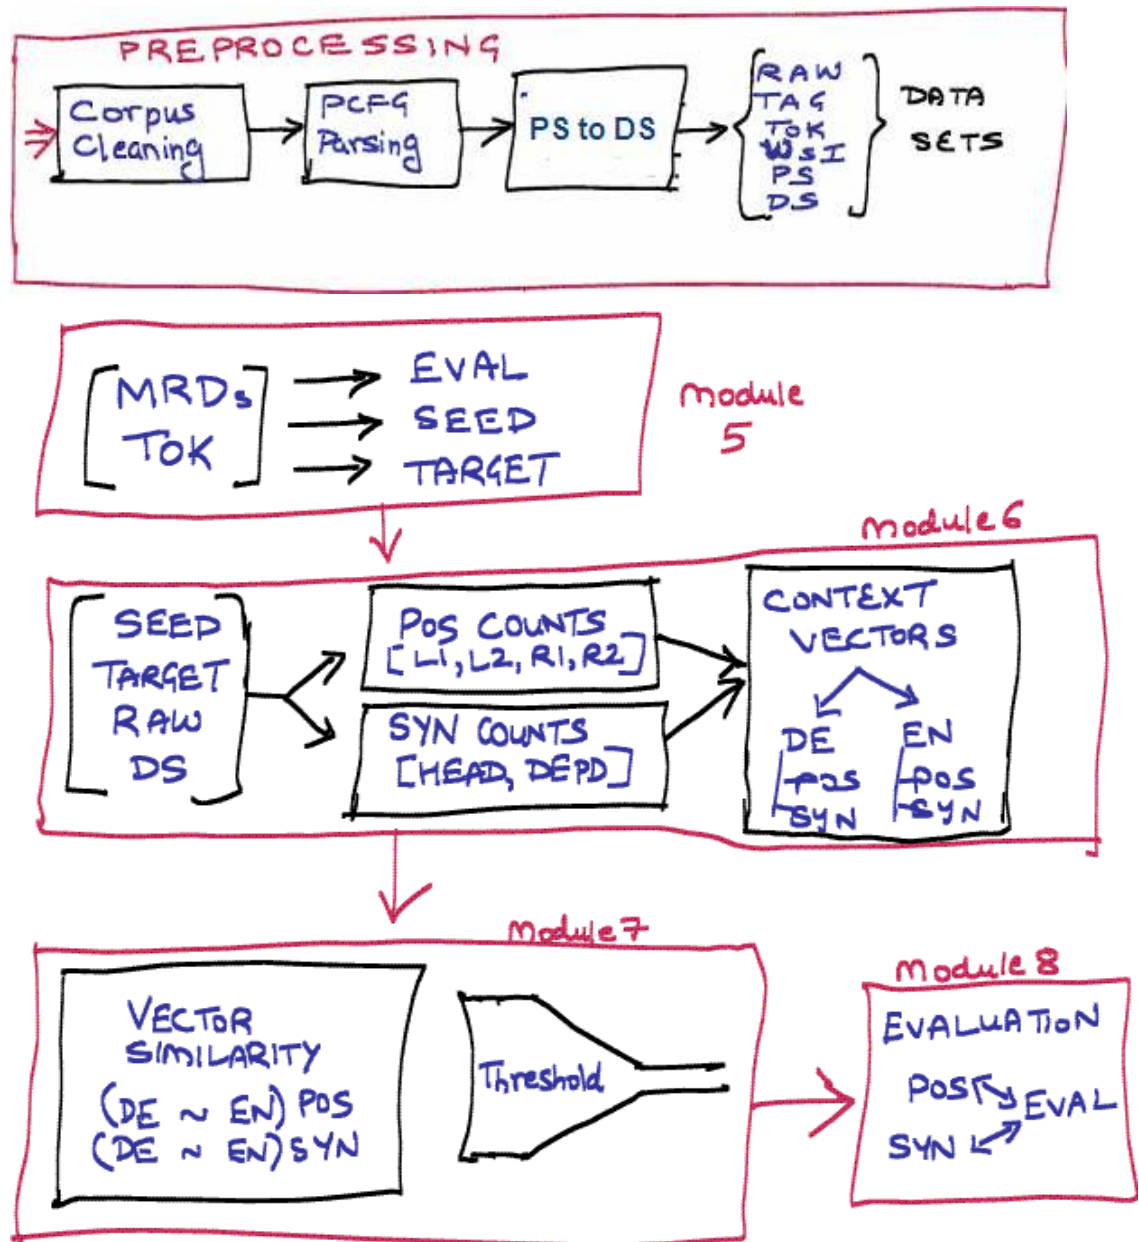 PREPROCESSING
Corpus
Cleaning
PCFG
Parsing
PS to DS
RAW
TAG
TOK
WSI
PS
DS
DATA
SETS
MRDs
TOK
EVAL
SEED
TARGET
Module
5
Module 6
SEED
TARGET
RAW
DS
POS COUNTS
[L1, L2, R1, R2]
SYN COUNTS
[HEAD, DEPD]
CONTEXT
VECTORS
DE
POS
SYN
EN
POS
SYN
Module 7
VECTOR
SIMILARITY
(DE ~ EN) POS
(DE ~ EN) SYN
Threshold
Module 8
EVALUATION
POS
EVAL
SYN